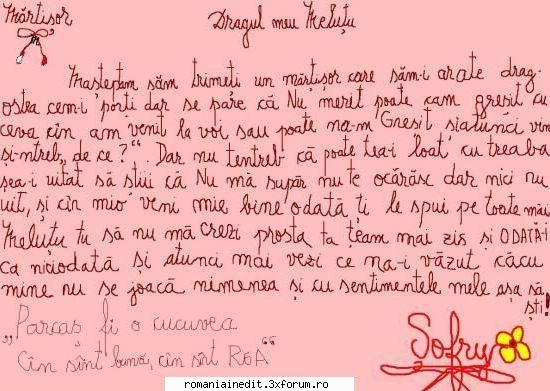 Mărtișor
Dragul meu Meluțu
Masteptam săm trimeti un mărtișor care săm-i arate drag-
ostea cem-i porti dar se pare că Nu merit poate cam gresit cu
ceva cîn am venit la voi sau poate na-m Gresit siatunci vin
si-ntreb,, de ce?“. Dar nu tentreb că poate tea-i loat cu treaba
sea-i uitat să stiu că Nu mă supăr nu te ocărăsc dar nici nu
uit, și cîn mio veni mie bine odată ti le spui pe toate măi
Meluțu tu să nu mă crezi prosta ta team mai zis și ODATĂ-i
ca niciodată și atunci mai vezi ce na-i văzut căcu
mine nu se joacă nimenea și cu sentimentele mele așa să
ști!
„Parcaș fi o cucuvea
Cîn sînt bună, cîn sînt REA“
Sofry
romaniainedit.3xforum.ro